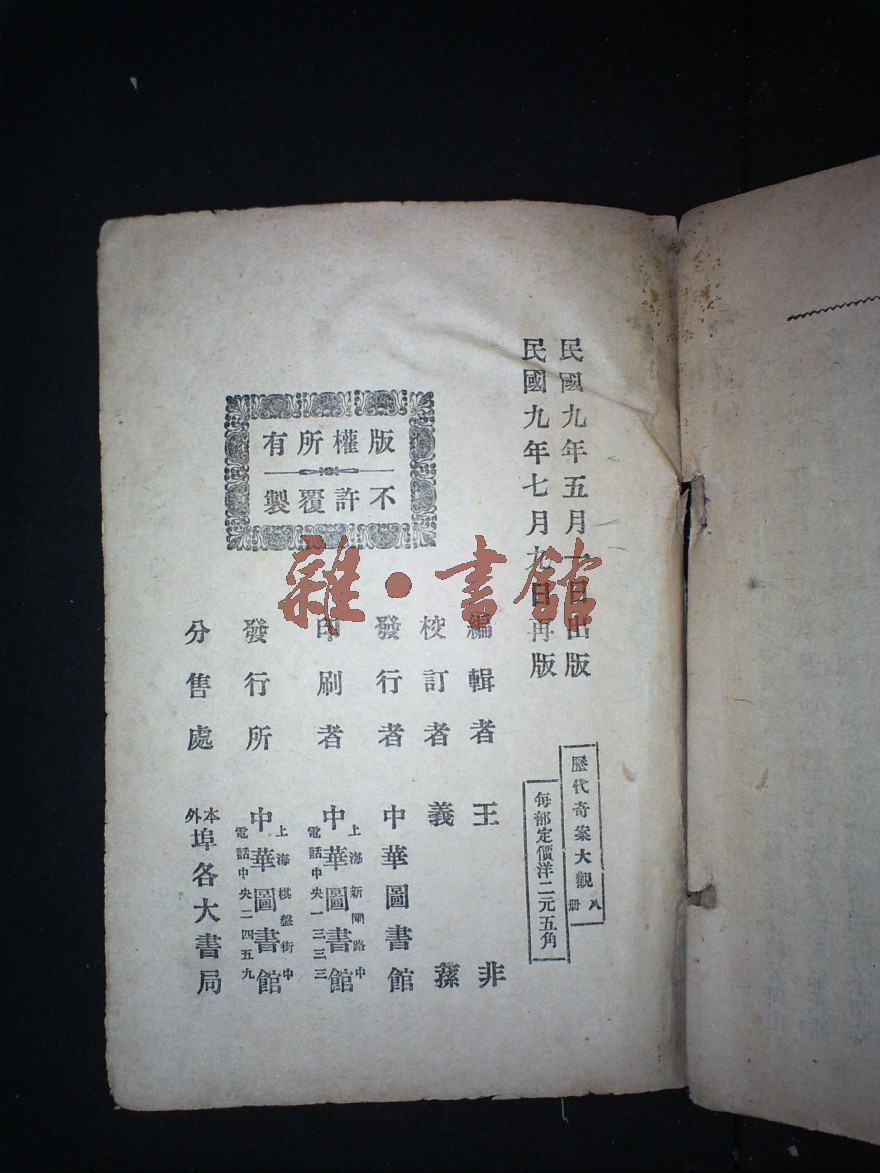 民國九年五月一日出版
民國九年七月九日再版
歷代奇案大觀 八册
每部定價洋二元五角
編輯者 王非
校訂者 義蓀
發行者 中華圖書館
印刷者 上海新閘路中 中華圖書館 電話中央一三三三
發行所 上海棋盤街中 中華圖書館 電話中央二四五九
分售處 本外埠各大書局
版權所有
不許覆製
雜·書館